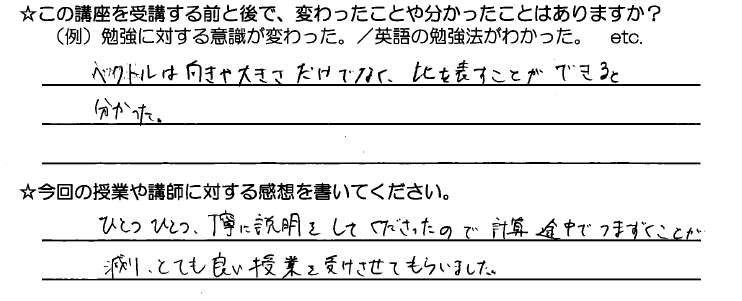 ☆この講座を受講する前と後で、変わったことや分かったことはありますか？
（例）勉強に対する意識が変わった。／英語の勉強法がわかった。　etc.
ベクトルは向きや大きさだけでなく、比を表すことができると
分かった。
☆今回の授業や講師に対する感想を書いてください。
ひとつひとつ、丁寧に説明をしてくださったので計算途中でつまずくことが
減り、とても良い授業を受けさせてもらいました。